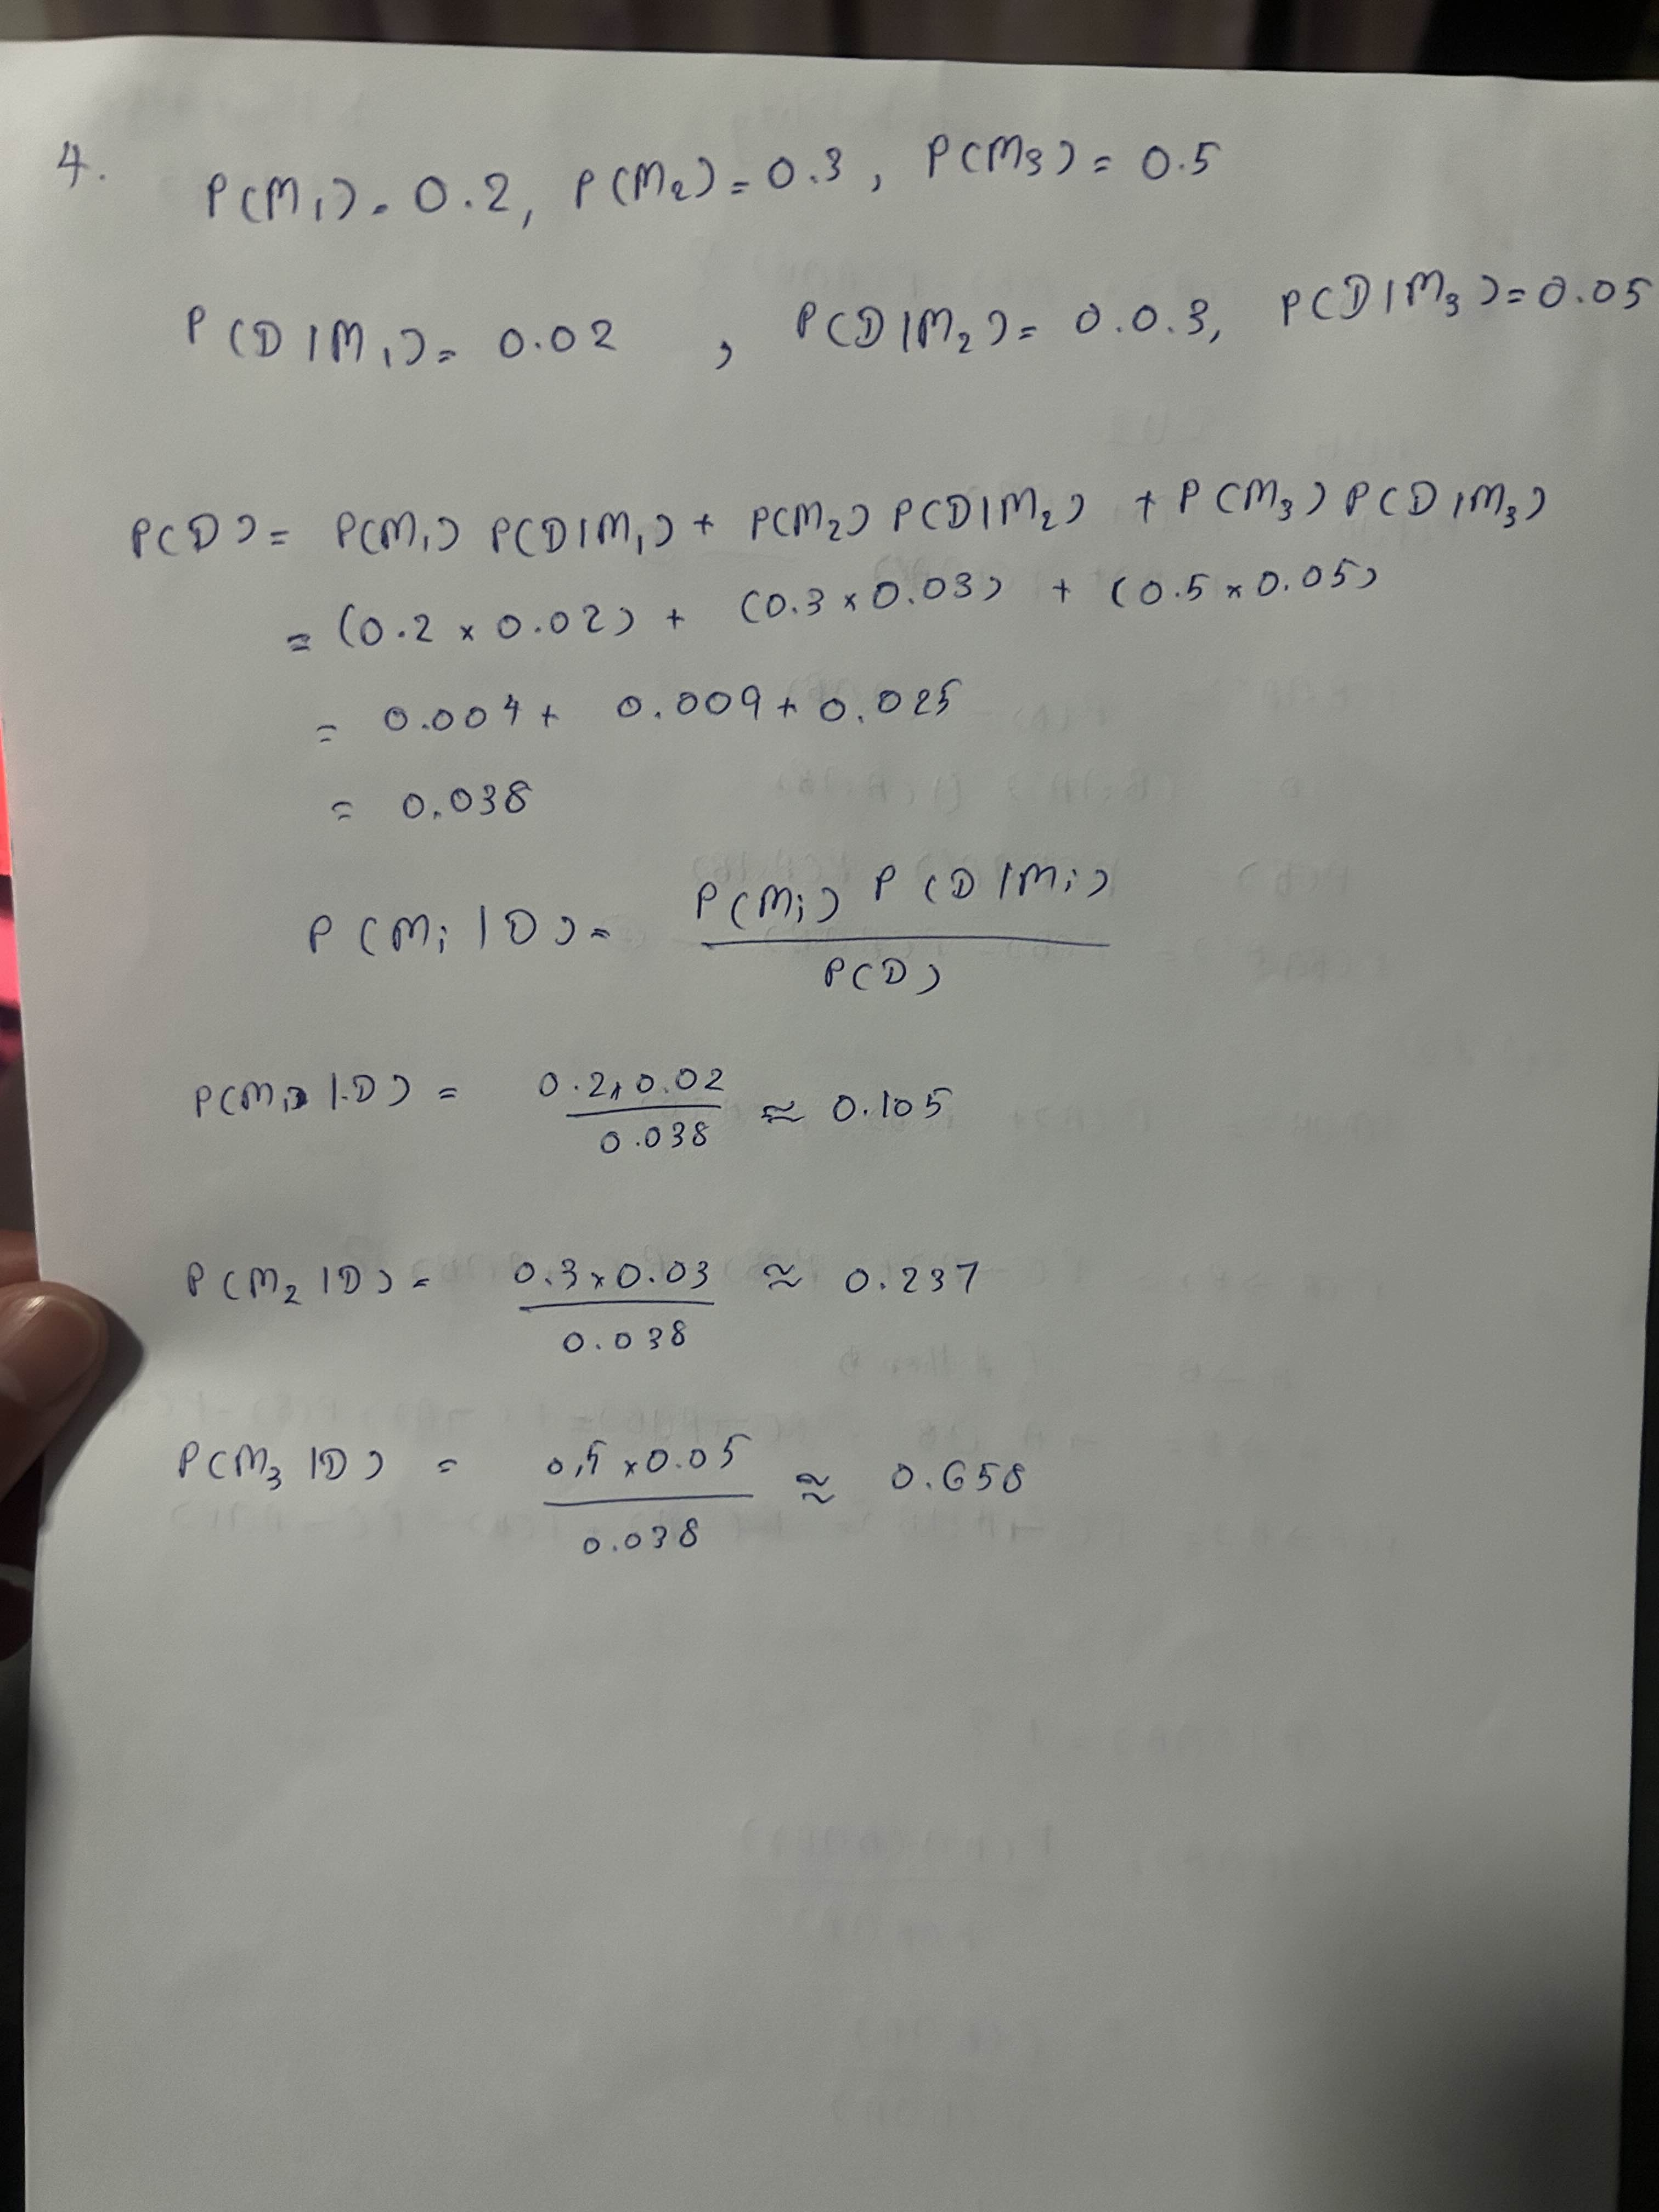 4.
P(M₁) = 0.2, P(M₂) = 0.3, P(M₃) = 0.5
P(D|M₁) = 0.02 , P(D|M₂) = 0.0.3, P(D|M₃) = 0.05
P(D) = P(M₁) P(D|M₁) + P(M₂) P(D|M₂) + P(M₃) P(D|M₃)
= (0.2 × 0.02) + (0.3 × 0.03) + (0.5 × 0.05)
= 0.004 + 0.009 + 0.025
= 0.038
P(Mᵢ|D) = P(Mᵢ) P(D|Mᵢ)
P(D)
P(M₁|D) = 0.2 × 0.02
0.038 ≈ 0.105
P(M₂|D) = 0.3 × 0.03 ≈ 0.237
0.038
P(M₃|D) = 0.5 × 0.05 ≈ 0.658
0.038